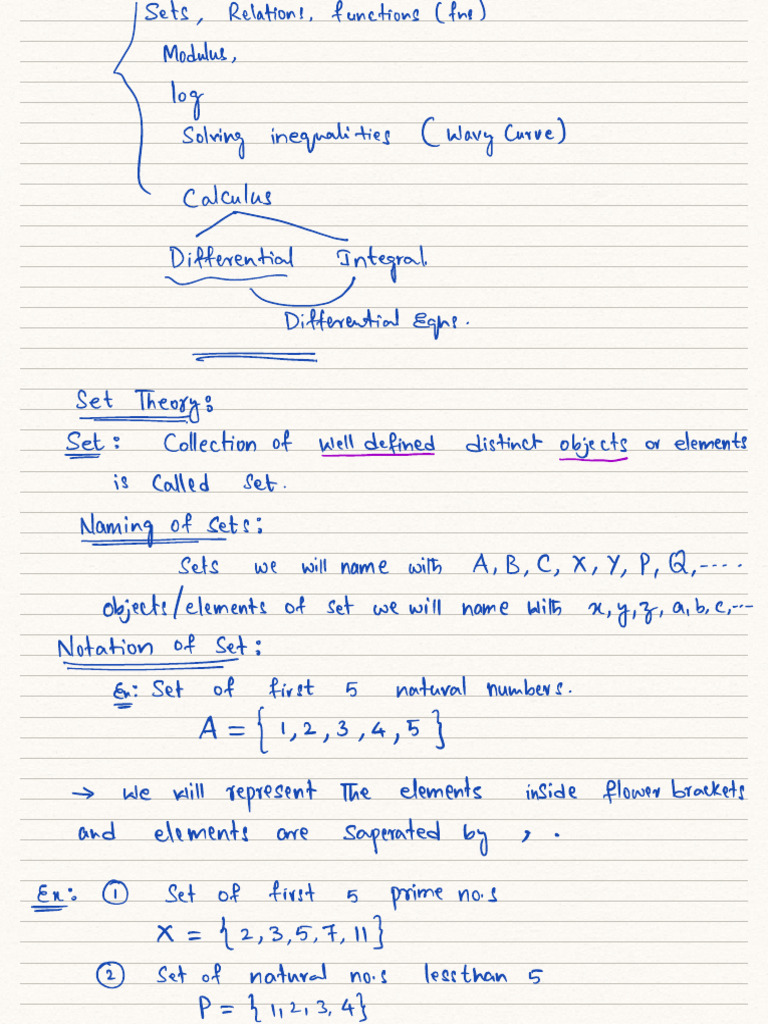 Sets, Relations, functions (fns)
Modulus,
log
Solving inequalities (Wavy Curve)
Calculus
Differential Integral.
Differential Eqns.
Set Theory:
Set: Collection of well defined distinct objects or elements
is called set.
Naming of sets:
Sets we will name with A, B, C, X, Y, P, Q, ....
objects/elements of set we will name with x, y, z, a, b, c, ...
Notation of Set:
Ex: Set of first 5 natural numbers.
A = { 1, 2, 3, 4, 5 }
→ we will represent The elements inside flower brackets
and elements are saperated by , .
Ex: ① Set of first 5 prime no.s
X = { 2, 3, 5, 7, 11 }
② Set of natural no.s lessthan 5
P = { 1, 2, 3, 4 }